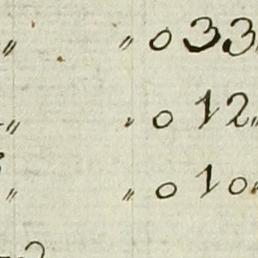 〃 〃 0 33
〃 〃 0 12〃
〃 〃 0 10